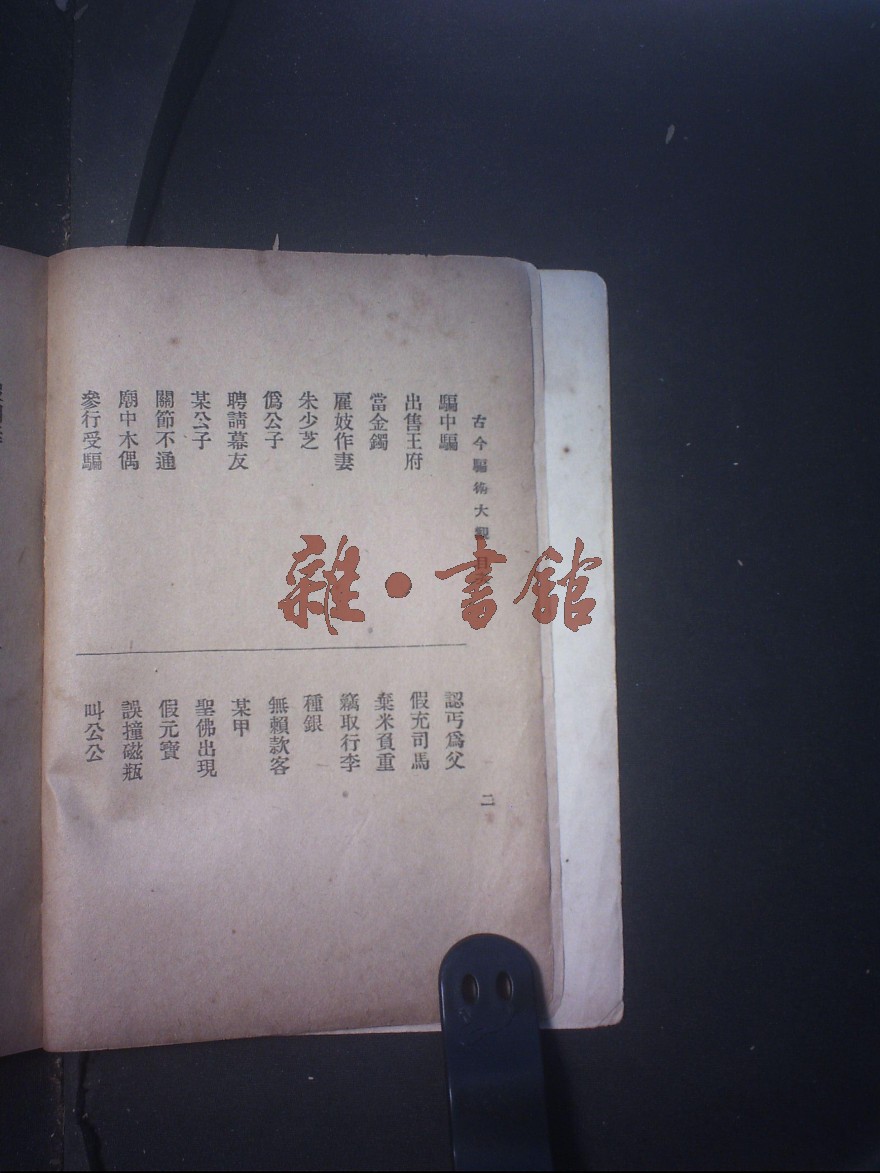 古今騙術大觀 目
二
騙中騙
出售王府
當金鐲
雇妓作妻
朱少芝
僞公子
聘請幕友
某公子
關節不通
廟中木偶
參行受騙
認丐爲父
假充司馬
棄米負重
竊取行李
種銀
無賴款客
某甲
聖佛出現
假元寶
誤撞磁瓶
叫公公
雜·書館